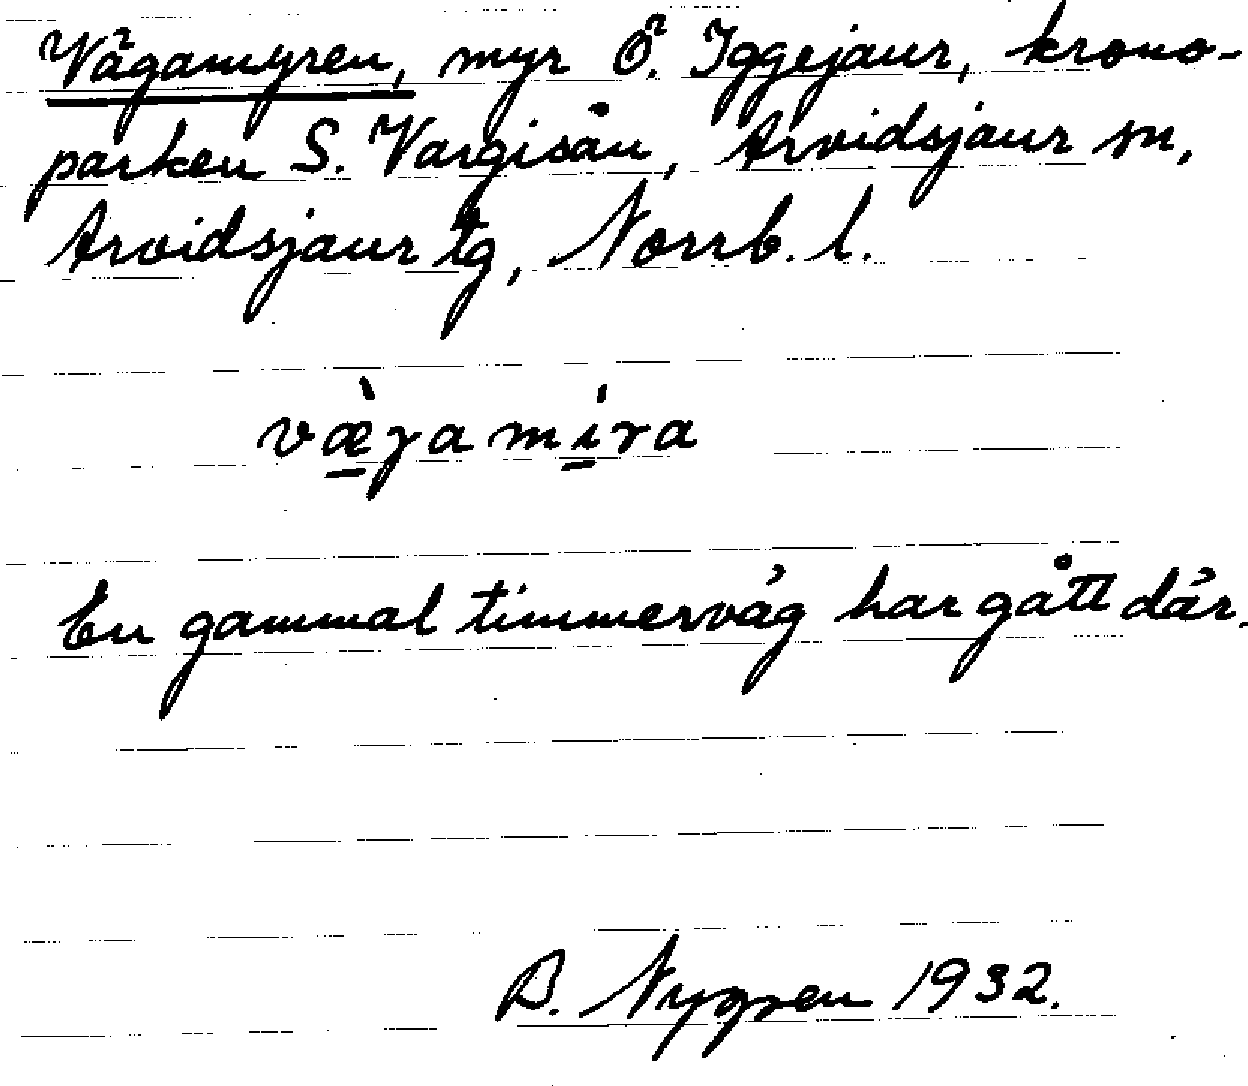 Vägamyren, myr Ö. Iggejaur, krono-
parken S. Vargisån, Arvidsjaur sn,
Arvidsjaur tg, Norrb. l.
væ̀gamíra
En gammal timmerväg har gått där.
B. Nygren 1932.